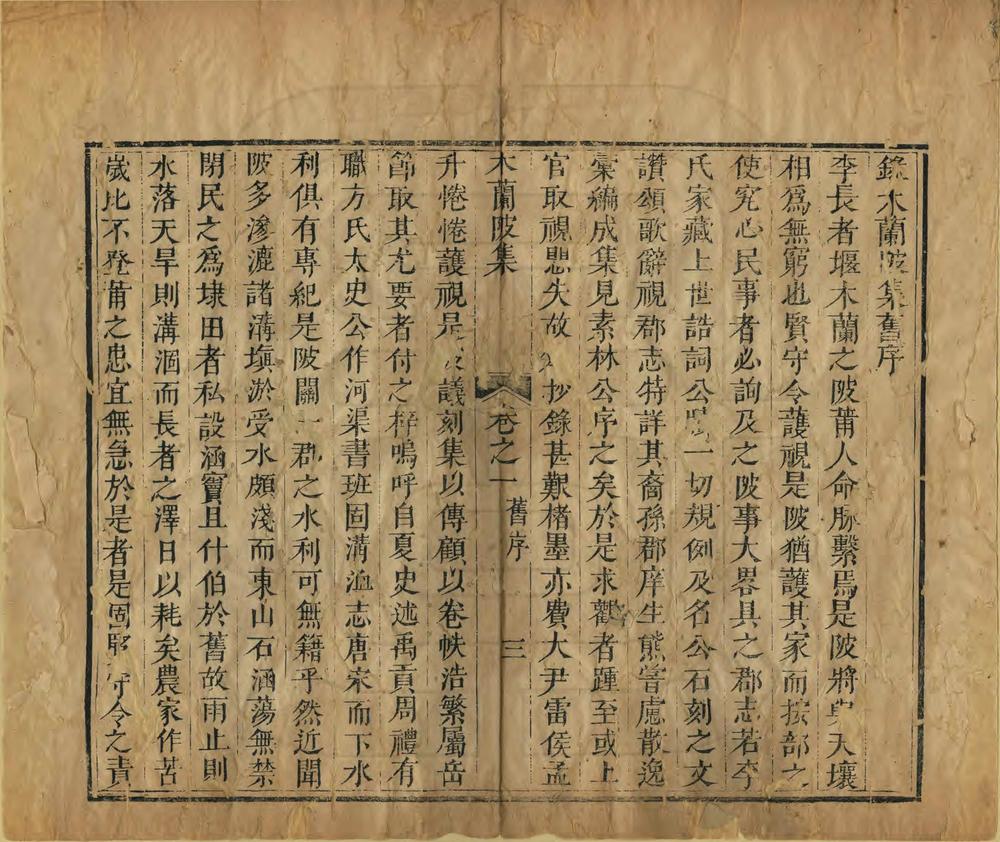 錄木蘭陂集舊序
李長者堰木蘭之陂莆人命脉繫焉是陂將與天壤
相為無窮也賢守令護視是陂猶護其家而按部之
使究心民事者必詢及之陂事大畧具之郡志若李
氏家藏上世誥詞公一切規例及名公石刻之文
讚頌歌辭視郡志特詳其裔孫郡庠生熊嘗慮散逸
彙編成集見素林公序之矣於是求觀者踵至或上
官取視懇失故抄錄甚艱楮墨亦費大尹雷侯孟
木蘭陂集 卷之一 舊序 三
升惓惓護視是議刻集以傳顧以卷帙浩繁屬岳
節取其尤要者付之梓嗚呼自夏史述禹貢周禮有
職方氏太史公作河渠書班固溝洫志唐宋而下水
利俱有專紀是陂關一郡之水利可無籍乎然近聞
陂多滲漉諸溝塡淤受水頗淺而東山石涵蕩無禁
閉民之為埭田者私設涵竇且什伯於舊故雨止則
水落天旱則溝涸而長者之澤日以耗矣農家作苦
歲比不登莆之忠宜無急於是者是固守令之責